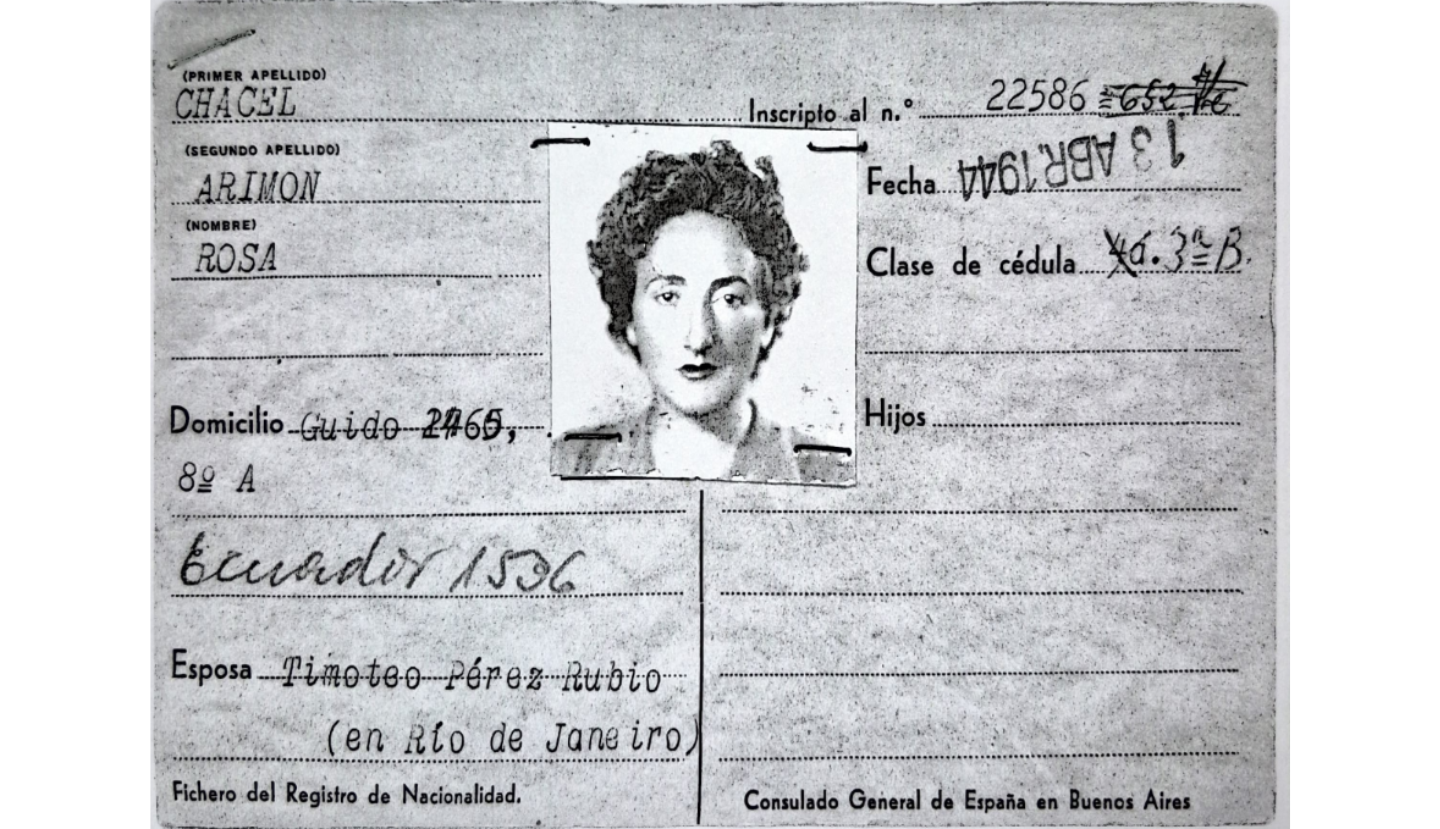 (PRIMER APELLIDO)
CHACEL
Inscripto al n.° 22586 652
(SEGUNDO APELLIDO)
ARIMON
Fecha 13 ABR. 1944
(NOMBRE)
ROSA
Clase de cédula 3ª B.
Domicilio Guido
Hijos
8º A
Ecuador 1536
Esposa Timoteo Pérez Rubio
(en Río de Janeiro)
Fichero del Registro de Nacionalidad.
Consulado General de España en Buenos Aires